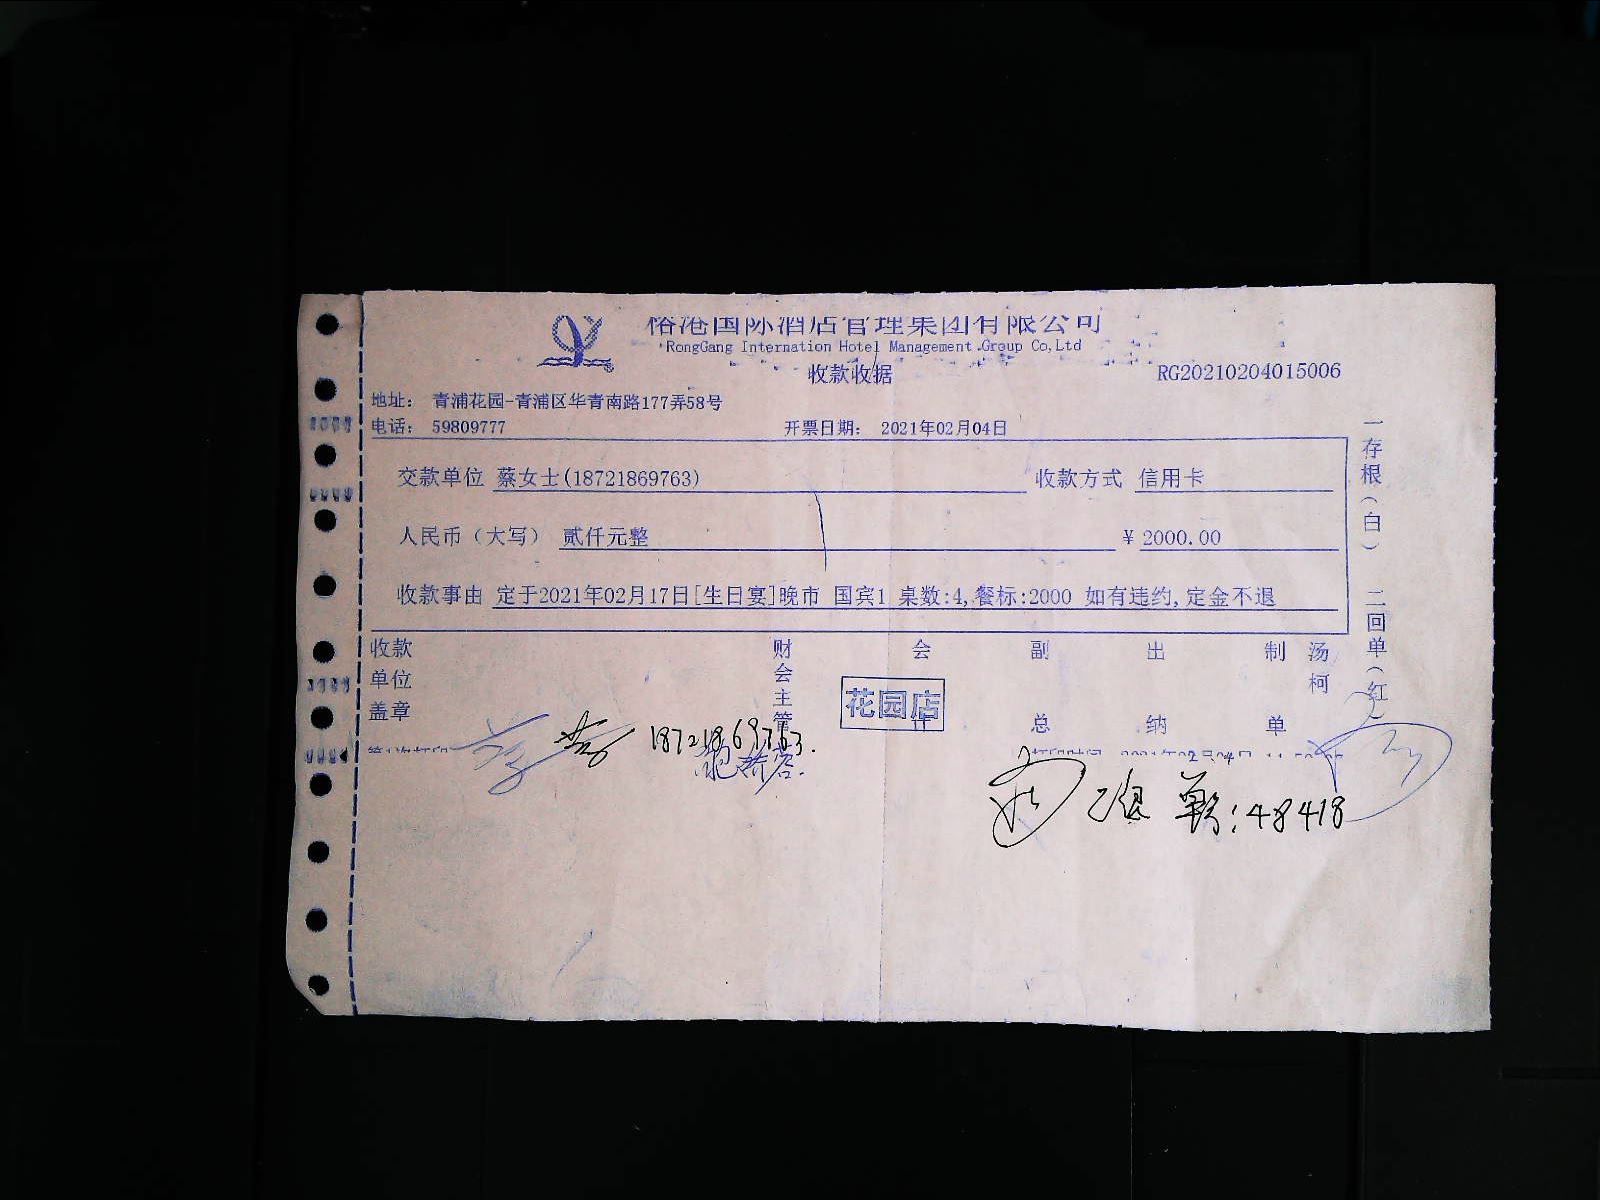 榕港国际酒店管理集团有限公司
RongGang Internation Hotel Management Group Co,Ltd
收款收据
RG20210204015006
地址： 青浦花园-青浦区华青南路177弄58号
电话： 59809777 开票日期： 2021年02月04日
交款单位 蔡女士(18721869763) 收款方式 信用卡
人民币（大写） 贰仟元整 ￥ 2000.00
收款事由 定于2021年02月17日[生日宴]晚市 国宾1 桌数:4,餐标:2000 如有违约,定金不退
一存根（白） 二回单（红）
收款单位盖章 财会主管 会计 副总 出纳 制单 汤柯
花园店
18721869763.
:48418